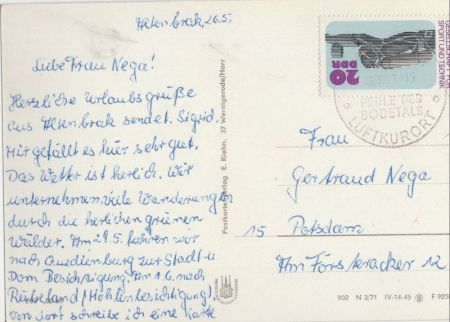 Altenbrak, 26.5.
Liebe Frau Nega!
Herzliche Urlaubsgrüße
aus Altenbrak sendet Sigrid
Mir gefällt es hier sehr gut.
Das Wetter ist herlich. Wir
unternehmen viele Wanderungen
durch die herlichen grünen
Wälder. Am 29.5. fahren wir
nach Quedlinburg zur Stadt u.
Dom Besichtigung. Am 1.6. nach
Rübeland (Höhlenbesichtigung).
Von dort schreibe ich eine Karte
Postkartenverlag E. Riehn, 37 Wernigerode/Harz
GESELLSCHAFT FÜR
SPORT UND TECHNIK
20
DDR
PERLE DES
BODETALS
LUFTKURORT
Frau
Gertraud Nega
15 Potsdam
Am Försteracker 12
902 N 3/71 IV-14-45 F 9250